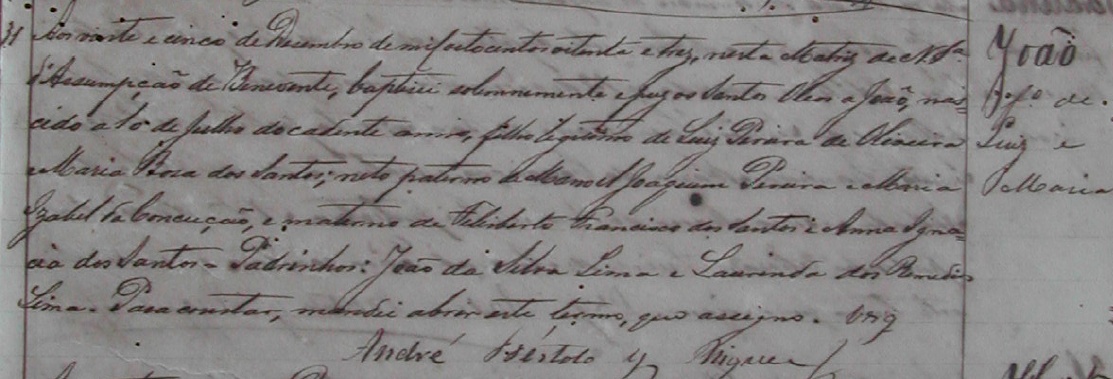 Aos vinte e cinco de Dezembro de mil oitocentos oitenta e trez, nesta Matriz de N. Sª.
d'Assumpção de Benevente, baptisei solemnemente e puz os Santos Oleos a João, nas-
cido a 10 de Julho do cadente anno, filho legitimo de Luiz Pereira de Oliveira
e Maria Rosa dos Santos; neto paterno de Manoel Joaquim Pereira e Maria
Izabel da Conceição, e materno de Feliberto Francisco dos Santos e Anna Igna-
cia dos Santos. Padrinhos: João da Silva Lima e Laurinda dos
Lima. Para constar, mandei abrir este termo, que assigno. O Vigº
André y
João
fº. de
Luiz e
Maria